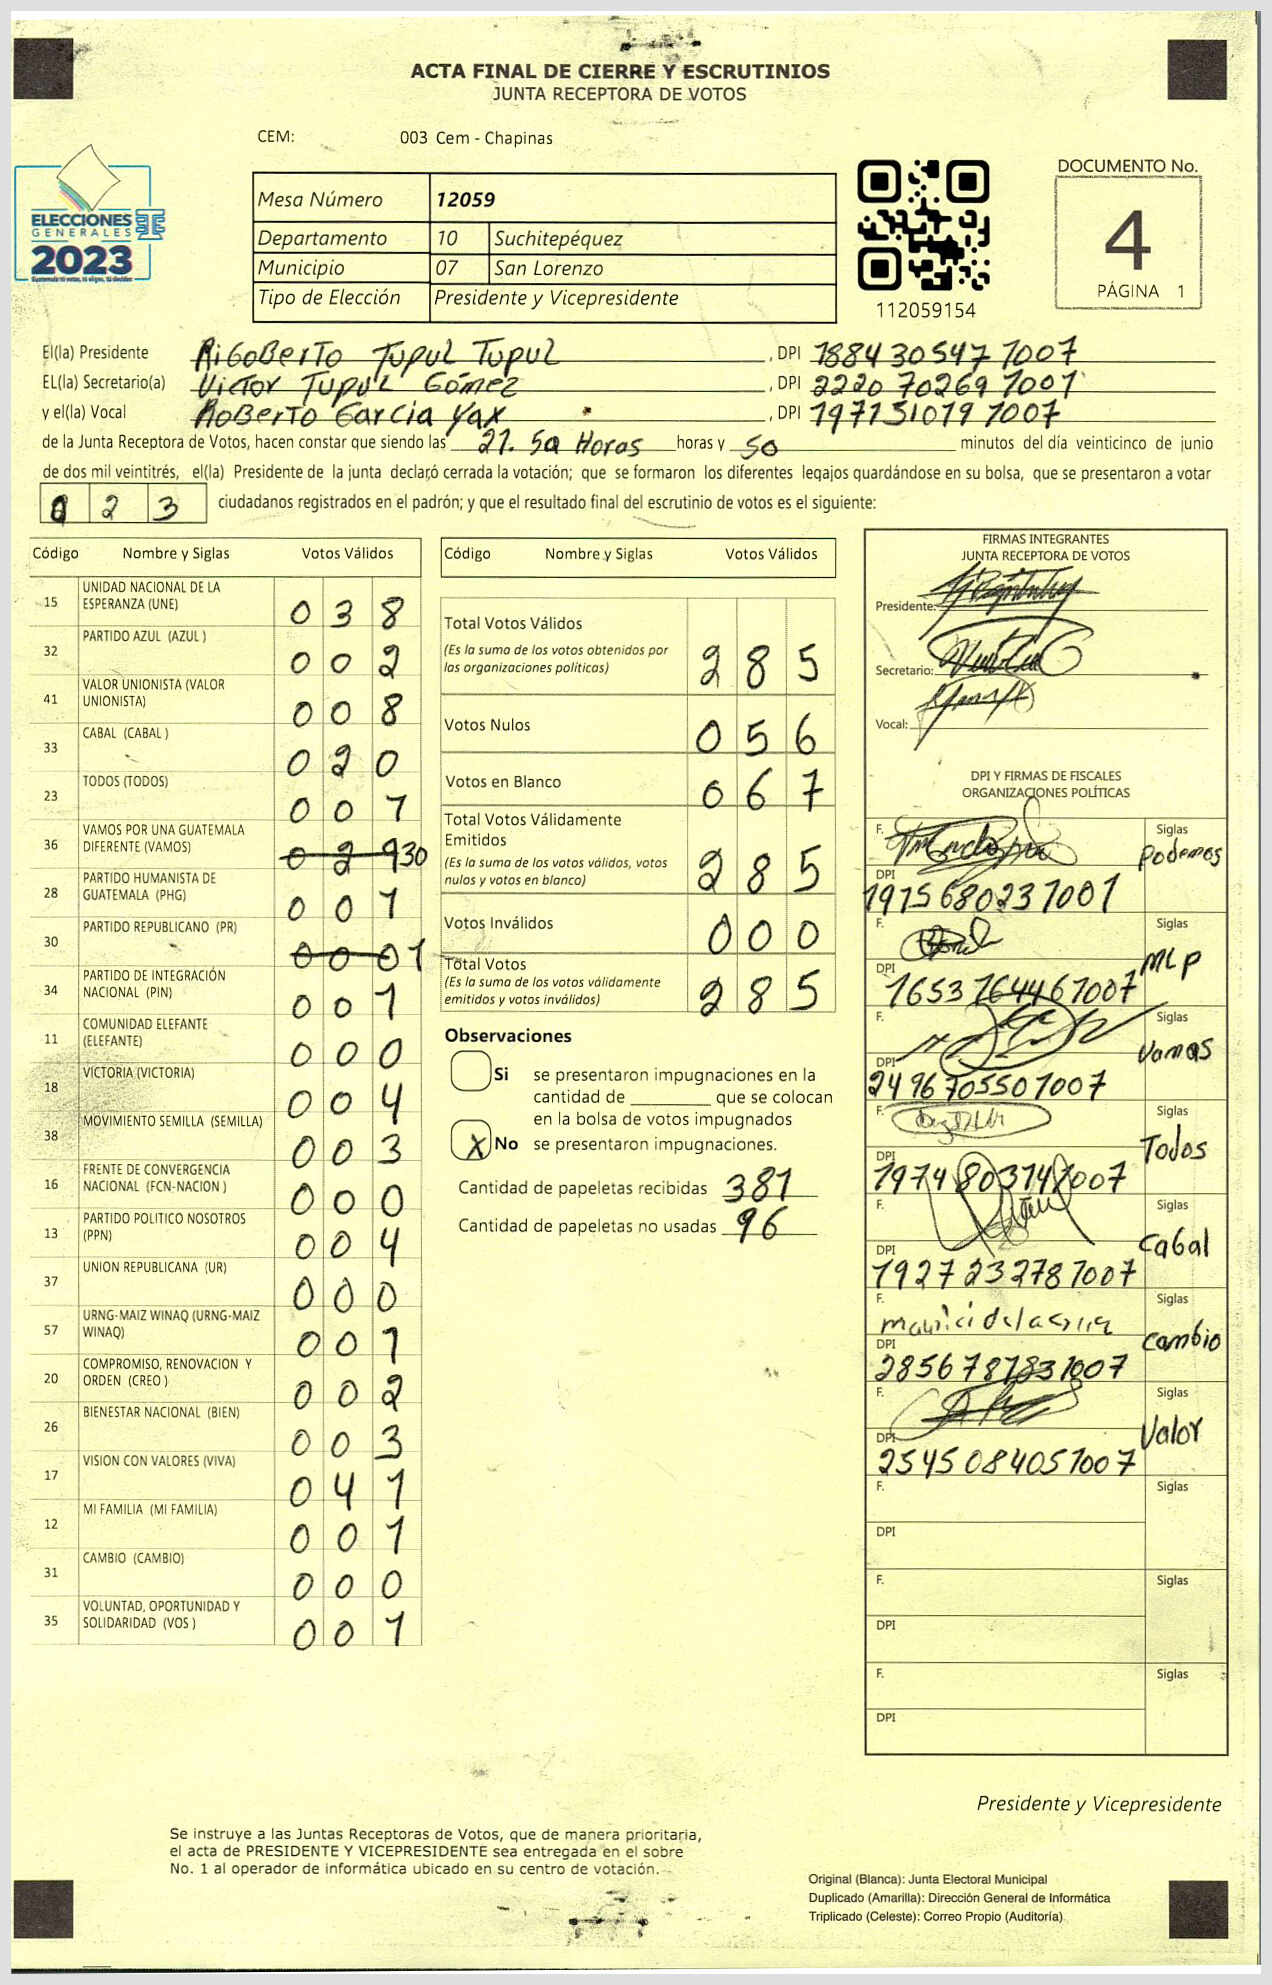 ACTA FINAL DE CIERRE Y ESCRUTINIOS
JUNTA RECEPTORA DE VOTOS
CEM: 003 Cem - Chapinas
ELECCIONES
GENERALES
2023
Mesa Número 12059
Departamento 10 Suchitepéquez
Municipio 07 San Lorenzo
Tipo de Elección Presidente y Vicepresidente
112059154
DOCUMENTO No.
4
PÁGINA 1
El(la) Presidente RiGoBerTo TupuL TupuL , DPI 1884 30547 1007
EL(la) Secretario(a) Victor Tupul Gómez , DPI 2220 70269 1001
y el(la) Vocal RoBerTo Garcia Yax , DPI 1971 51019 1007
de la Junta Receptora de Votos, hacen constar que siendo las 21. 50 Horas horas y 50 minutos del día veinticinco de junio
de dos mil veintitrés, el(la) Presidente de la junta declaró cerrada la votación; que se formaron los diferentes legajos guardándose en su bolsa, que se presentaron a votar
0 2 3 ciudadanos registrados en el padrón; y que el resultado final del escrutinio de votos es el siguiente:
Código Nombre y Siglas Votos Válidos
15 UNIDAD NACIONAL DE LA
ESPERANZA (UNE) 0 3 8
32 PARTIDO AZUL (AZUL ) 0 0 2
41 VALOR UNIONISTA (VALOR
UNIONISTA) 0 0 8
33 CABAL (CABAL ) 0 2 0
23 TODOS (TODOS) 0 0 7
36 VAMOS POR UNA GUATEMALA
DIFERENTE (VAMOS) 0 2 9 30
28 PARTIDO HUMANISTA DE
GUATEMALA (PHG) 0 0 1
30 PARTIDO REPUBLICANO (PR) 0 0 0 1
34 PARTIDO DE INTEGRACIÓN
NACIONAL (PIN) 0 0 1
11 COMUNIDAD ELEFANTE
(ELEFANTE) 0 0 0
18 VICTORIA (VICTORIA) 0 0 4
38 MOVIMIENTO SEMILLA (SEMILLA) 0 0 3
16 FRENTE DE CONVERGENCIA
NACIONAL (FCN-NACION ) 0 0 0
13 PARTIDO POLITICO NOSOTROS
(PPN) 0 0 4
37 UNION REPUBLICANA (UR) 0 0 0
57 URNG-MAIZ WINAQ (URNG-MAIZ
WINAQ) 0 0 1
20 COMPROMISO, RENOVACION Y
ORDEN (CREO ) 0 0 2
26 BIENESTAR NACIONAL (BIEN) 0 0 3
17 VISION CON VALORES (VIVA) 0 4 1
12 MI FAMILIA (MI FAMILIA) 0 0 1
31 CAMBIO (CAMBIO) 0 0 0
35 VOLUNTAD, OPORTUNIDAD Y
SOLIDARIDAD (VOS ) 0 0 1
Código Nombre y Siglas Votos Válidos
Total Votos Válidos
(Es la suma de los votos obtenidos por
las organizaciones políticas) 2 8 5
Votos Nulos 0 5 6
Votos en Blanco 0 6 7
Total Votos Válidamente
Emitidos
(Es la suma de los votos válidos, votos
nulos y votos en blanco) 2 8 5
Votos Inválidos 0 0 0
Total Votos
(Es la suma de los votos válidamente
emitidos y votos inválidos) 2 8 5
Observaciones
Si se presentaron impugnaciones en la
cantidad de ________ que se colocan
en la bolsa de votos impugnados
X No se presentaron impugnaciones.
Cantidad de papeletas recibidas 381
Cantidad de papeletas no usadas 96
FIRMAS INTEGRANTES
JUNTA RECEPTORA DE VOTOS
Presidente:
Secretario:
Vocal:
DPI Y FIRMAS DE FISCALES
ORGANIZACIONES POLÍTICAS
F. Siglas
Podemos
DPI
1975 68023 7001
F. Siglas
MLP
DPI
1653 76446 1007
F. Siglas
Vamos
DPI
2496 70550 1007
F. Siglas
Todos
DPI
1974 80374 1007
F. Siglas
Cabal
DPI
1927 23278 1007
F. Siglas
cambio
DPI
2856 78783 1007
F. Siglas
Valor
DPI
2545 08405 1007
F. Siglas
DPI
F. Siglas
DPI
F. Siglas
DPI
Presidente y Vicepresidente
Se instruye a las Juntas Receptoras de Votos, que de manera prioritaria,
el acta de PRESIDENTE Y VICEPRESIDENTE sea entregada en el sobre
No. 1 al operador de informática ubicado en su centro de votación.
Original (Blanca): Junta Electoral Municipal
Duplicado (Amarilla): Dirección General de Informática
Triplicado (Celeste): Correo Propio (Auditoría)